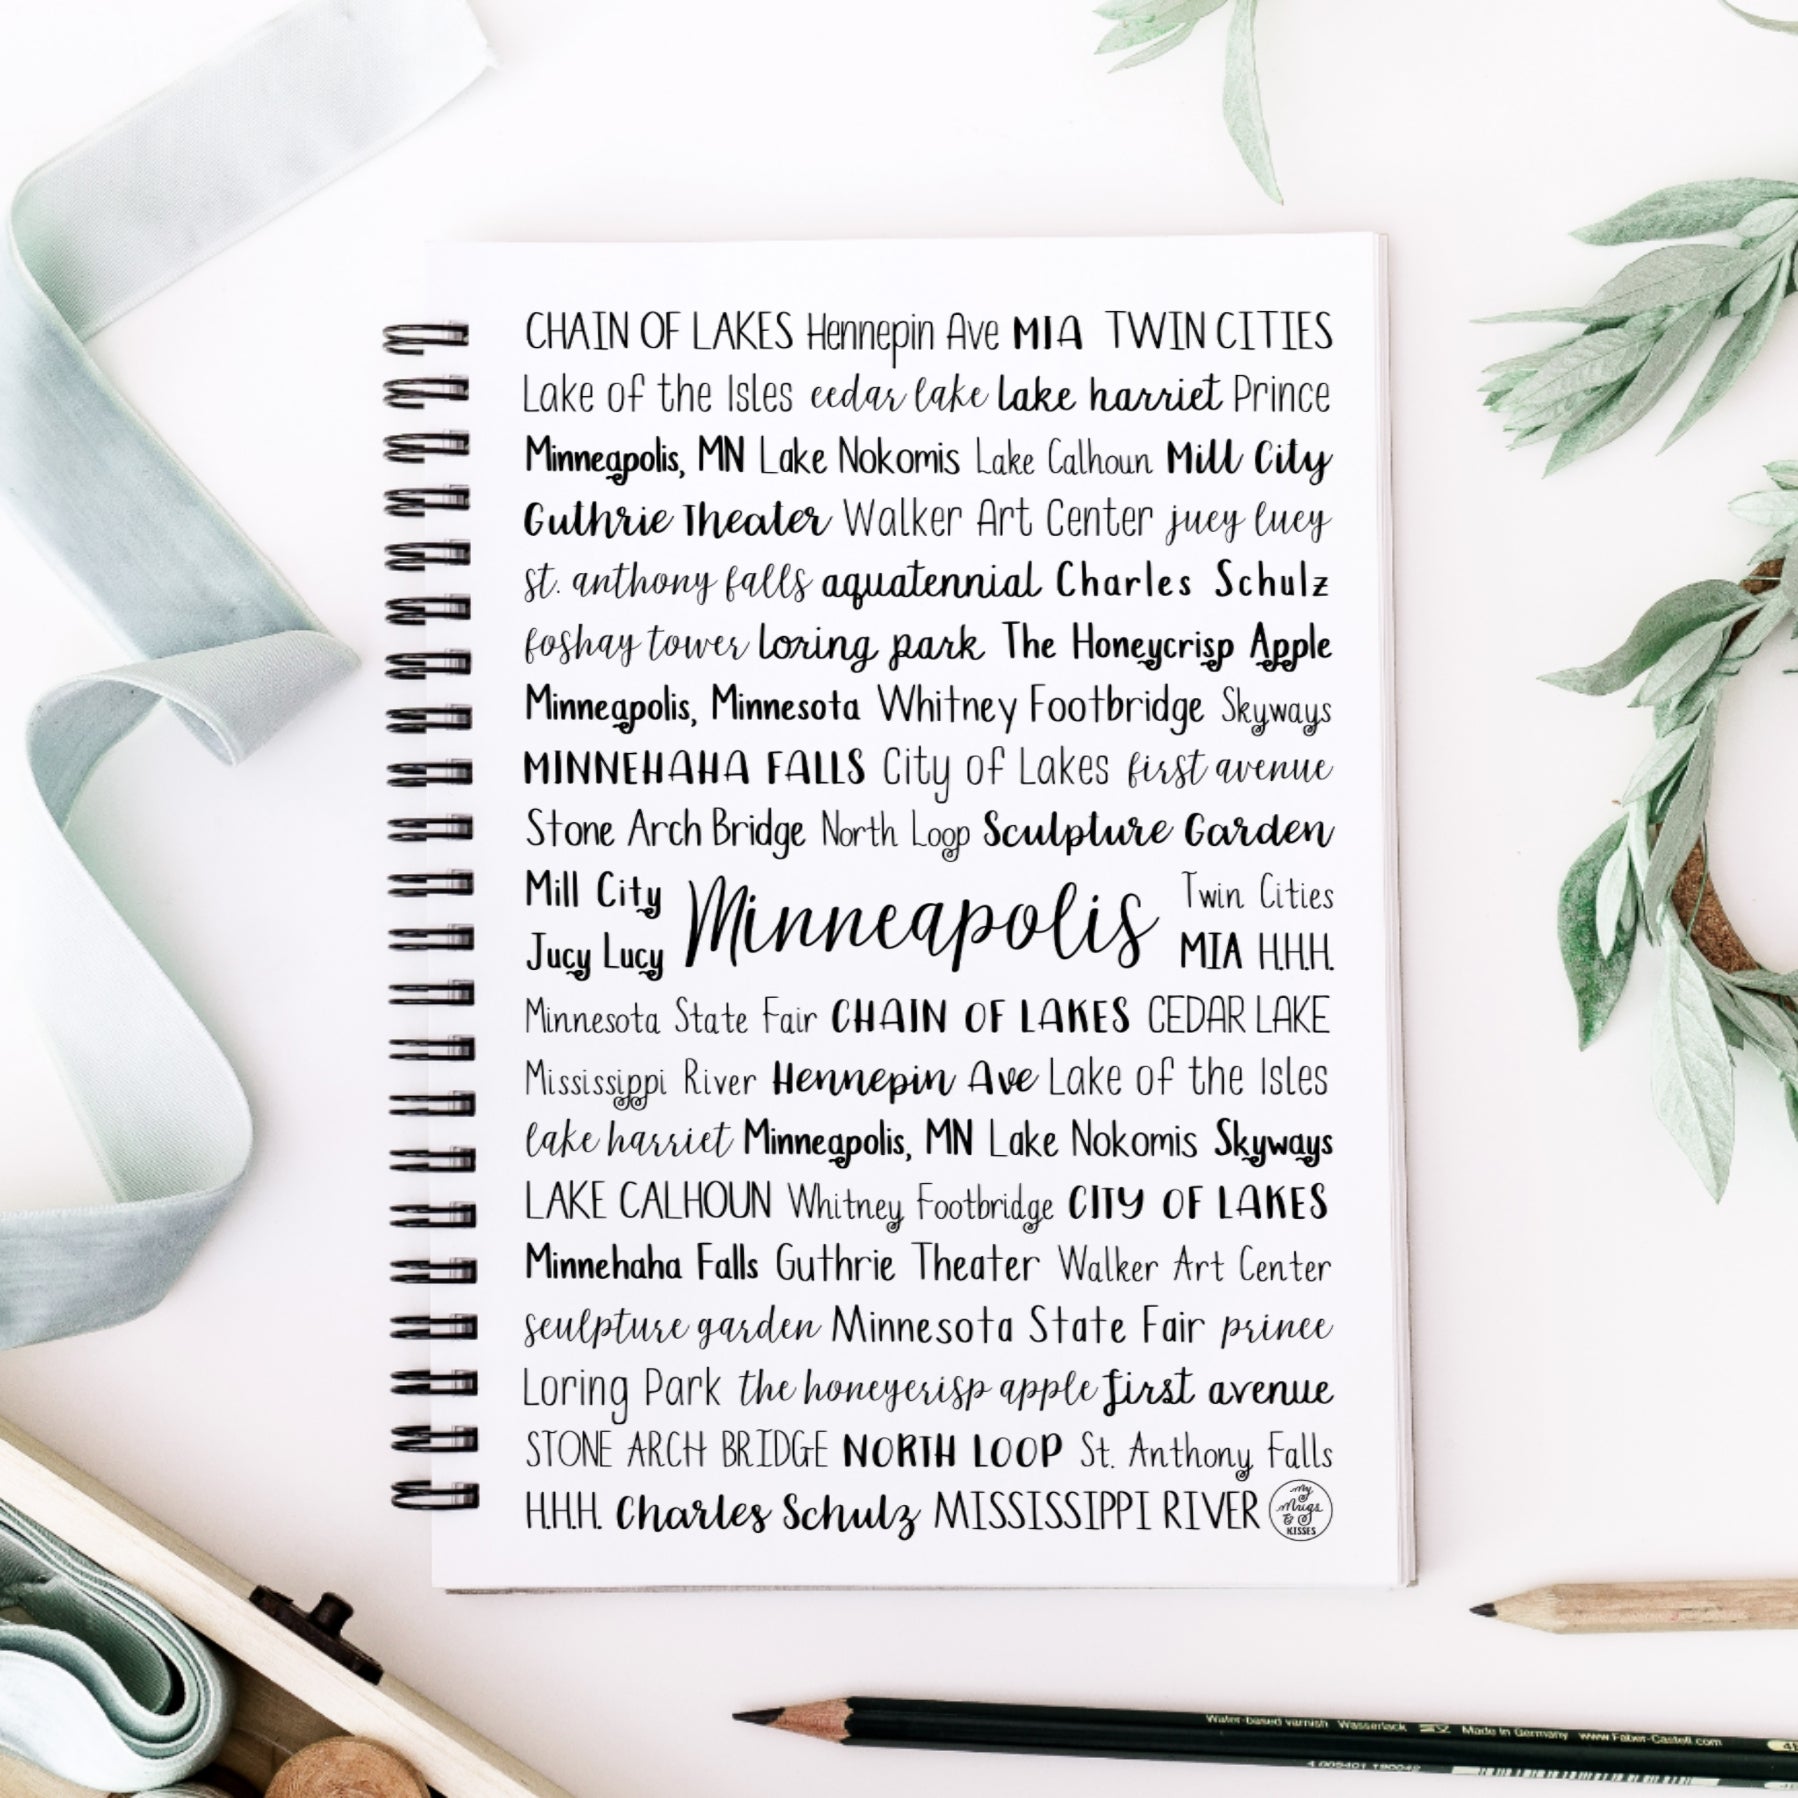 CHAIN OF LAKES Hennepin Ave MIA TWIN CITIES
Lake of the Isles cedar lake lake harriet Prince
Minneapolis, MN Lake Nokomis Lake Calhoun Mill City
Guthrie Theater Walker Art Center jucy lucy
st. anthony falls aquatennial Charles Schulz
foshay tower loring park The Honeycrisp Apple
Minneapolis, Minnesota Whitney Footbridge Skyways
MINNEHAHA FALLS City of Lakes first avenue
Stone Arch Bridge North Loop Sculpture Garden
Mill City Minneapolis Twin Cities
Jucy Lucy MIA H.H.H.
Minnesota State Fair CHAIN OF LAKES CEDAR LAKE
Mississippi River Hennepin Ave Lake of the Isles
lake harriet Minneapolis, MN Lake Nokomis Skyways
LAKE CALHOUN Whitney Footbridge CITY OF LAKES
Minnehaha Falls Guthrie Theater Walker Art Center
sculpture garden Minnesota State Fair prince
Loring Park the honeycrisp apple first avenue
STONE ARCH BRIDGE NORTH LOOP St. Anthony Falls
H.H.H. Charles Schulz MISSISSIPPI RIVER
My
Mugs
&
KISSES
Water-based varnish Wasserlack Made in Germany www.Faber-Castell.com
4 005401 190042